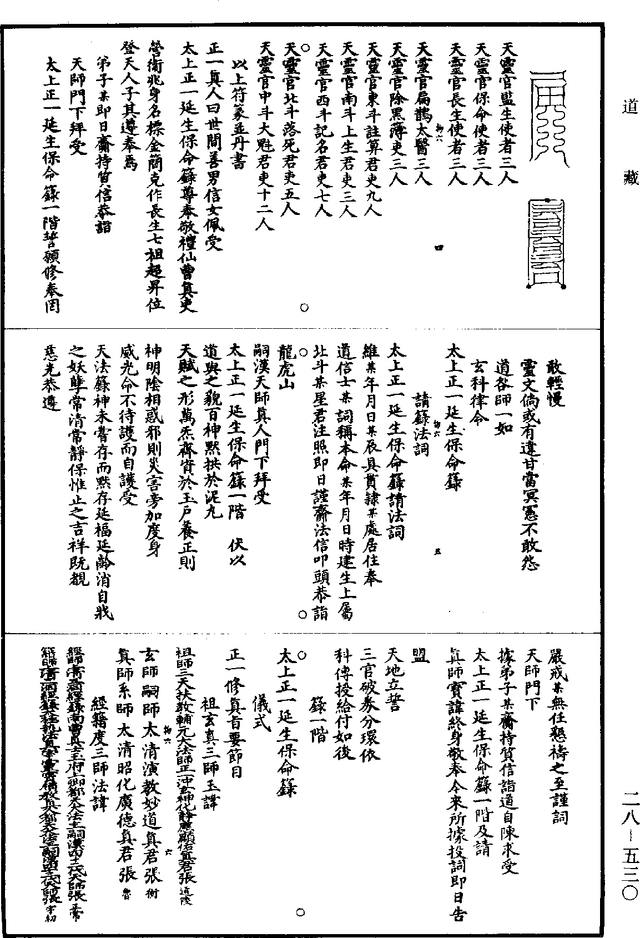 道藏
天靈官監生使者三人
天靈官保命使者三人
天靈官長生使者三人
天靈官扁鵲太醫三人
天靈官除黑簿吏三人
天靈官東斗註算君吏九人
天靈官南斗上生君吏三人
天靈官西斗記名君吏七人
天靈官北斗落死君吏五人
天靈官中斗大魁君吏十二人
以上符篆並丹書
正一真人曰世間善男信女佩受
太上正一延生保命籙尊奉敬禮仙曹真吏
營衛兆身名標金簡克作長生七祖超昇位
登天人子其遵奉焉
弟子某即日齋持質信恭詣
天師門下拜受
太上正一延生保命籙一階誓願修奉罔
敢輕慢
靈文倘或有違甘當冥憲不敢怨
道咎師一如
玄科律令
太上正一延生保命籙
請籙法詞
太上正一延生保命籙請法詞
維某年月日某辰具貫隸某處居住奉
道信士某詞稱本命某年月日時建生上屬
北斗某星君注照即日謹齋法信叩頭恭詣
龍虎山
嗣漢天師真人門下拜受
太上正一延生保命籙一階 伏以
道與之貌百神黙拱於泥丸
天賦之形萬炁齊資於玉戶養正則
神明陰相惑邪則災害旁加度身
威光命不待護而自護受
天法籙神未嘗存而黙存延福延齡消自戕
之妖孽常清常靜保惟止之吉祥既覩
慈光恭遵
嚴戒某無任懇禱之至謹詞
天師門下
據弟子某齋持質信詣道自陳求受
太上正一延生保命籙一階及請
真師寶諱終身敬奉今來所據投詞即日告
盟
天地立誓
三官破券分環依
科傳授給付如後
籙一階
太上正一延生保命籙
儀式
正一修真旨要節目
祖玄真三師玉諱
祖師三天扶教輔元大法師正一冲玄神化靜應顯佑真君張道陵
玄師嗣師太清演教妙道真君張衡
真師系師太清昭化廣德真君張魯
經籍度三師法諱
二八-五三〇